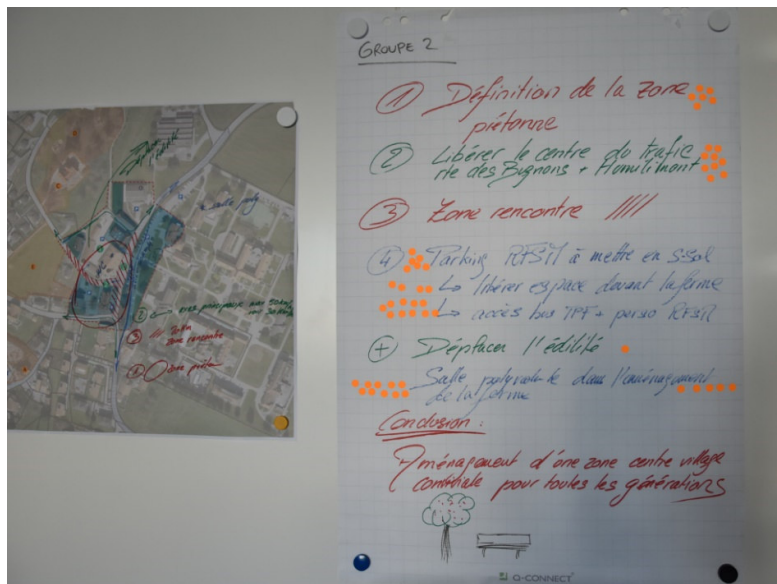 GROUPE 2
① Définition de la zone
piétonne
② Libérer le centre du trafic
rte des Bugnons + Humilimont
③ Zone rencontre ////
④ Parking RFSM à mettre en s-sol
↳ libérer espace devant la ferme
↳ accès bus TPF + perso RFSM
+ Déplacer l'édilité
Salle polyvalente dans l'aménagement
de la ferme
Conclusion :
Aménagement d'une zone centre village
conviviale pour toutes les générations
Q-CONNECT
salle poly
② axes principaux max 50km/h
③ //
zone rencontre
① zone piéton